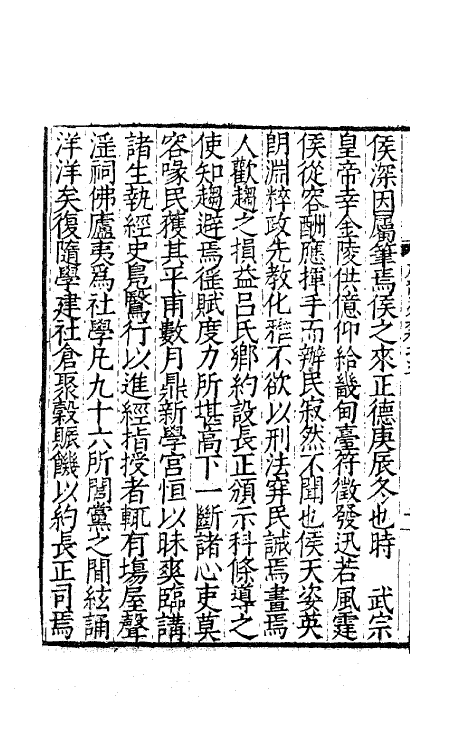 侯深因屬筆焉侯之來正德庚辰冬也時　武宗
皇帝幸金陵供億仰給畿甸臺符徵發迅若風霆
侯從容酬應揮手而辦民寂然不聞也侯天姿英
朗淵粹政先教化雅不欲以刑法弃民誠焉畫焉
人歡趨之損益吕氏鄉約設長正頒示科條導之
使知趨避焉徭賦度力所堪高下一斷諸心吏莫
容喙民獲其平甫數月鼎新學宫恒以昧爽臨講
諸生執經史鳧鷖行以進經指授者輒有塲屋聲
淫祠佛廬夷爲社學凡九十六所閭黨之間絃誦
洋洋矣復隨學建社倉聚穀賑饑以約長正司焉